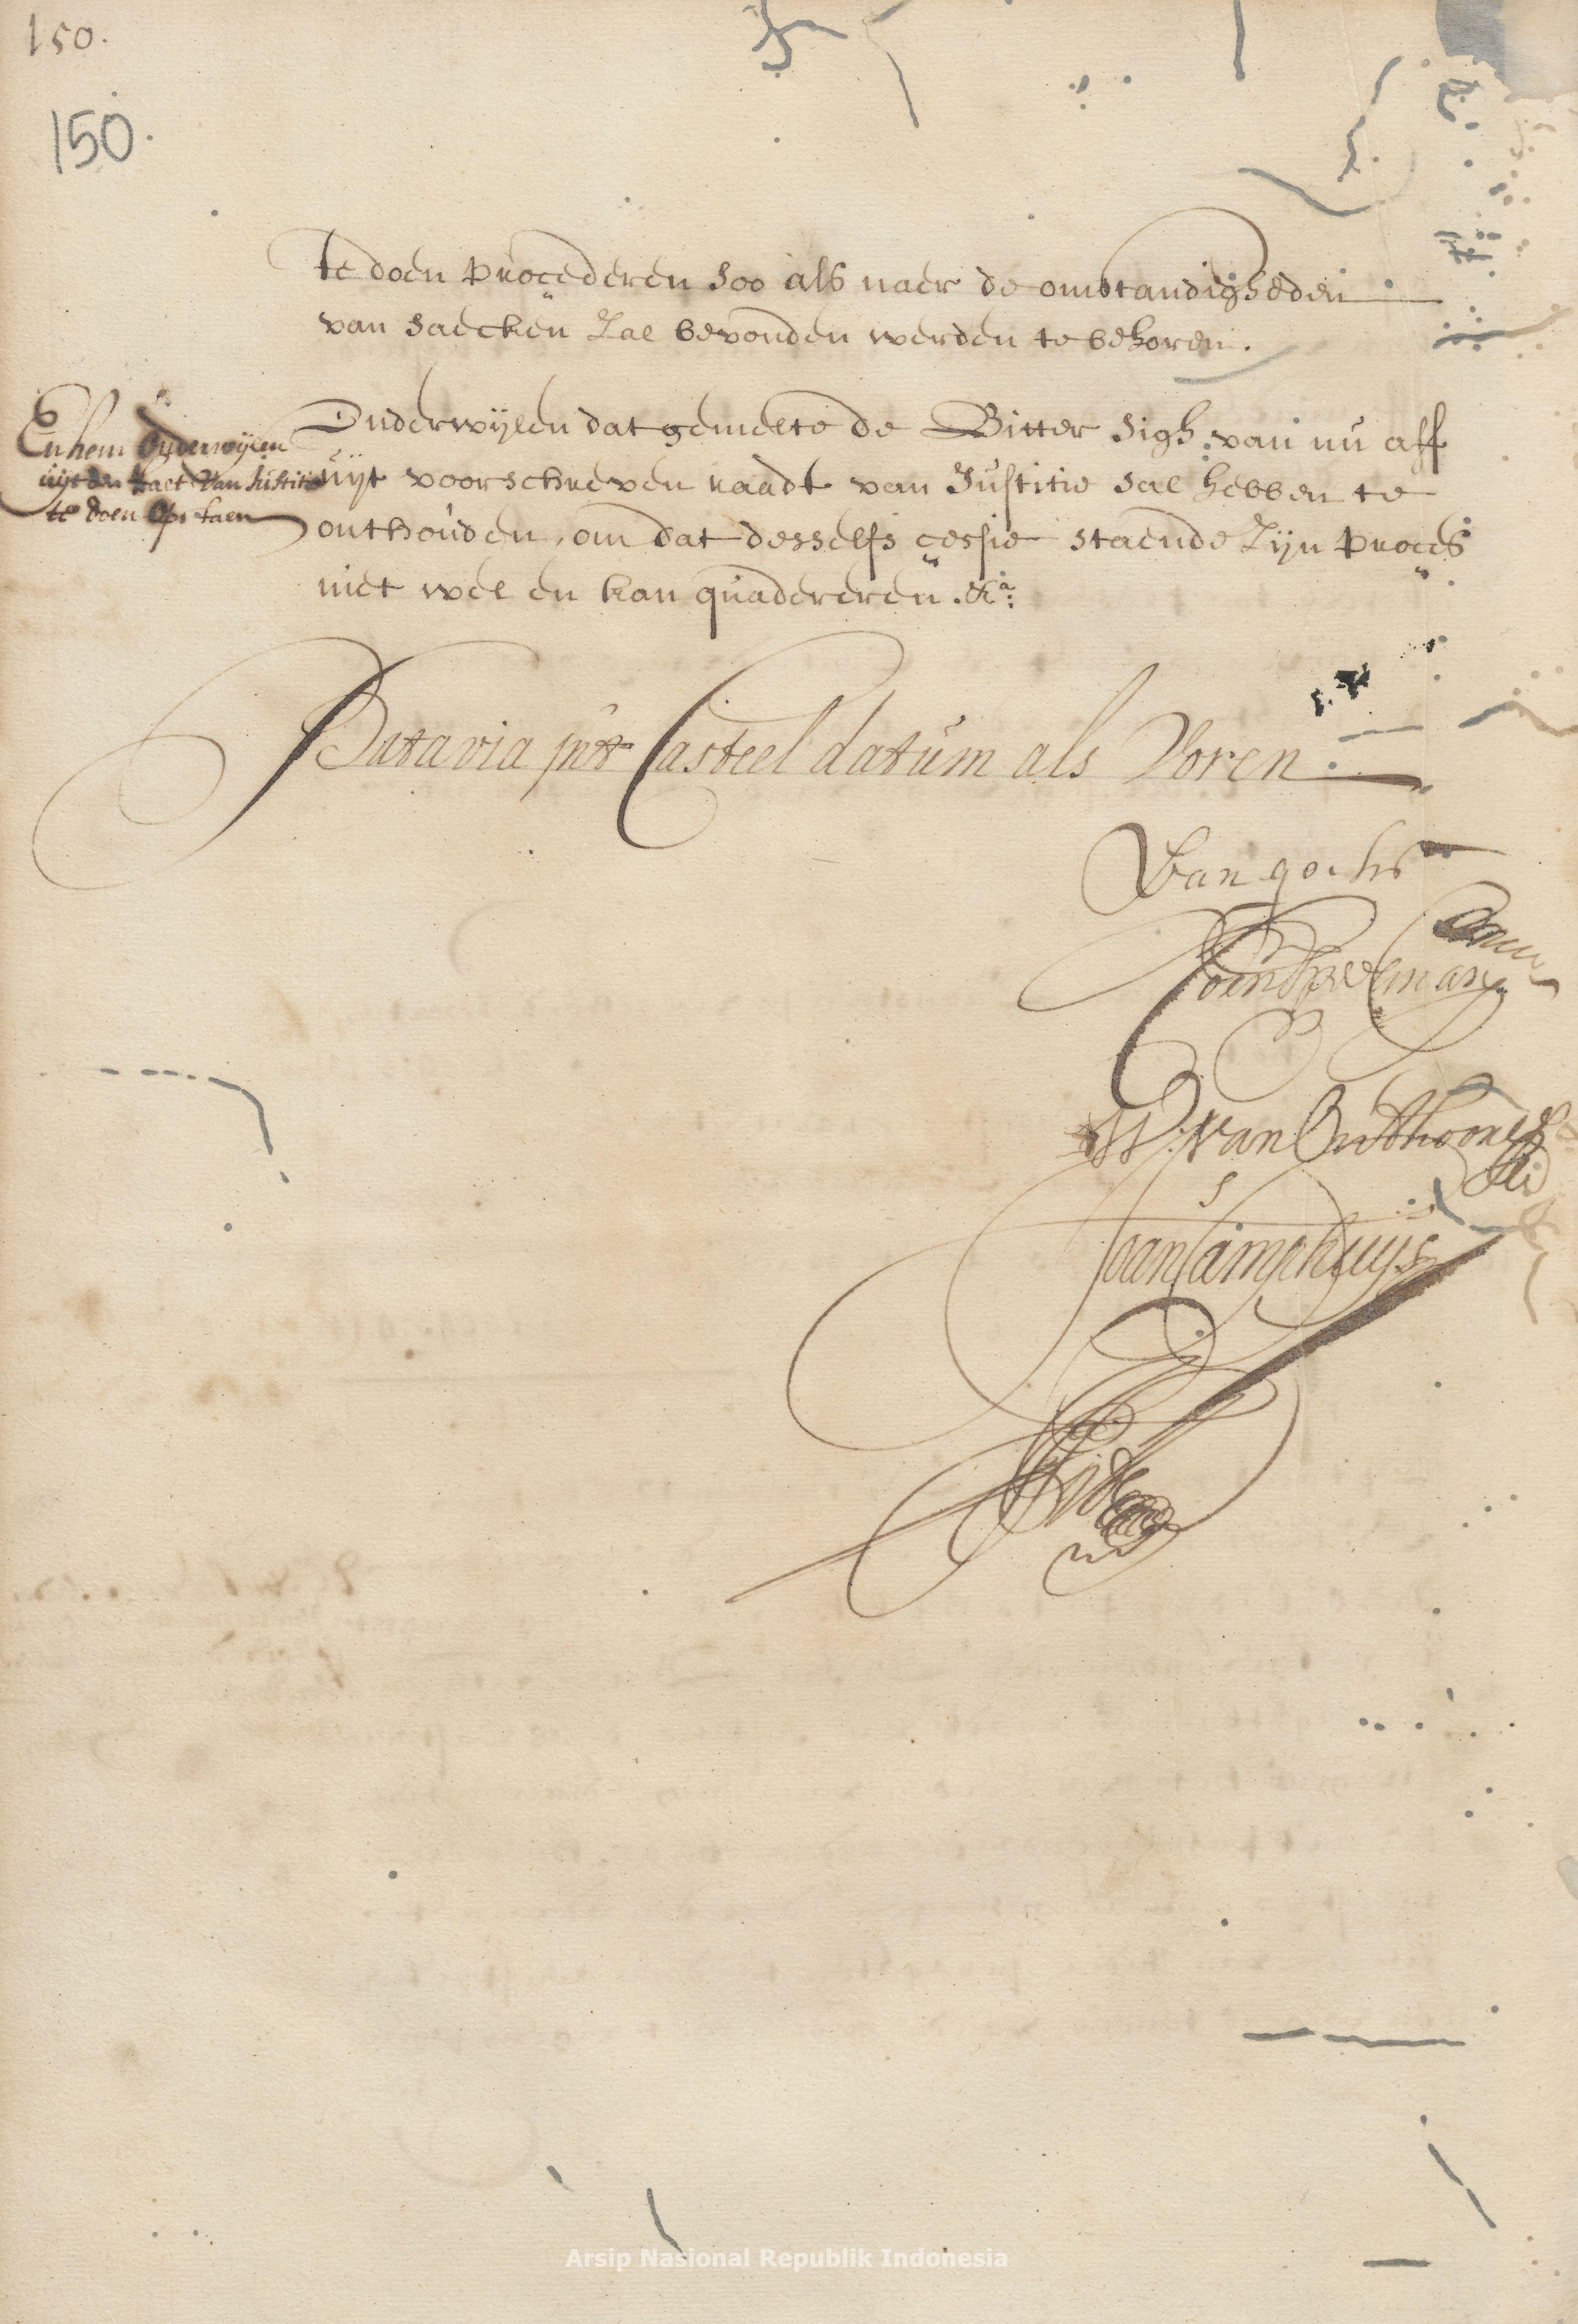 150.
150.
te doen procederen soo als naer de ombstandigheden
van saecken zal bevonden werden te behoren.
En hem Onderwijlen
uijt den Raet van Justitie
te doen Op staen
Onderwijlen dat gemelte de Bitter sigh van nu aff
uijt voorschreven raadt van Justitie sal hebben te
onthouden, om dat desselfs cessie staende zijn proces
niet wel en kan quadereren. &a:
Batavia in't Casteel datum als Voren
Van goens
W. van Outhoorn
Joan Camphuijs
Arsip Nasional Republik Indonesia